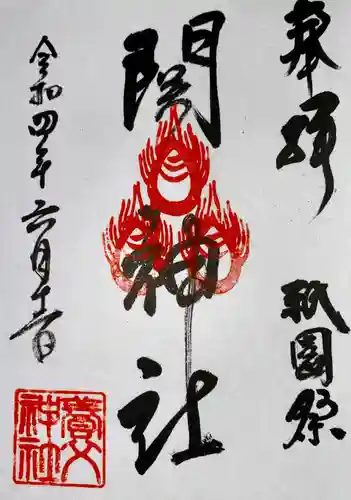 奉拝
祇園祭
関神社
令和四年六月十一日
神社